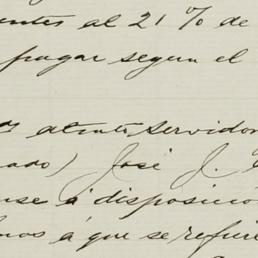 entes al 21% de
pagar segun el
os atentos servidor
ado) José J.
nse á disposició
mos á que se refier